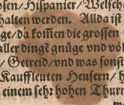 osen / Hispanier / Welsche
halten werden. Allda ist
ge / da kommen die grossen
aller dingk gnüge vnd völ
/ Getreid / vnd was sonst
Kauffleuten Heusern / h
einem sehr hohen Thurn